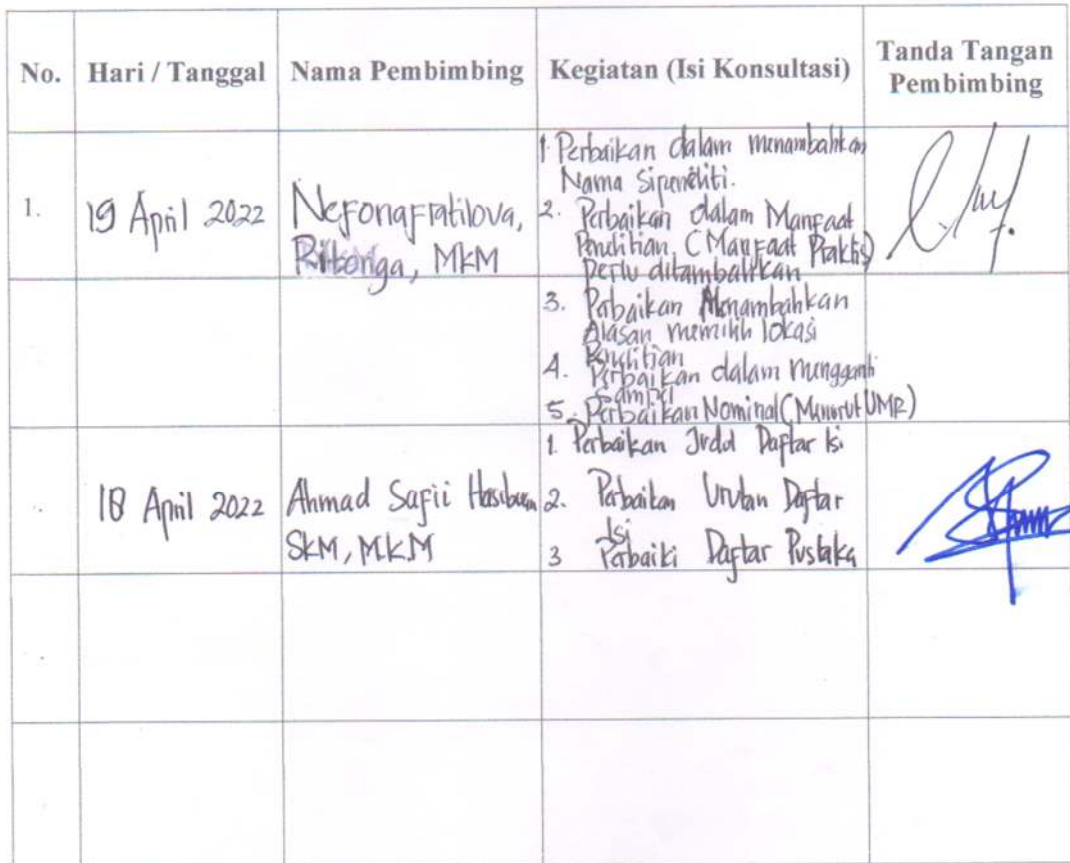 No. Hari / Tanggal Nama Pembimbing Kegiatan (Isi Konsultasi) Tanda Tangan
Pembimbing
1. 19 April 2022
Neponafratilova,
Ritonga, MKM
1 Perbaikan dalam menambahkan
Nama Sipeneliti.
2. Perbaikan dalam Manfaat
Penelitian, (Manfaat Praktis)
perlu ditambahkan
3. Perbaikan Menambahkan
Alasan memilih lokasi
Penelitian
4. Perbaikan dalam mengganti
Sampel
5. Perbaikan Nominal (Menurut UMR)
18 April 2022
Ahmad Safii Hasibuan
SKM, MKM
1. Perbaikan Judul Daftar Isi
2. Perbaikan Urutan Daftar
Isi
3 Perbaiki Daftar Pustaka